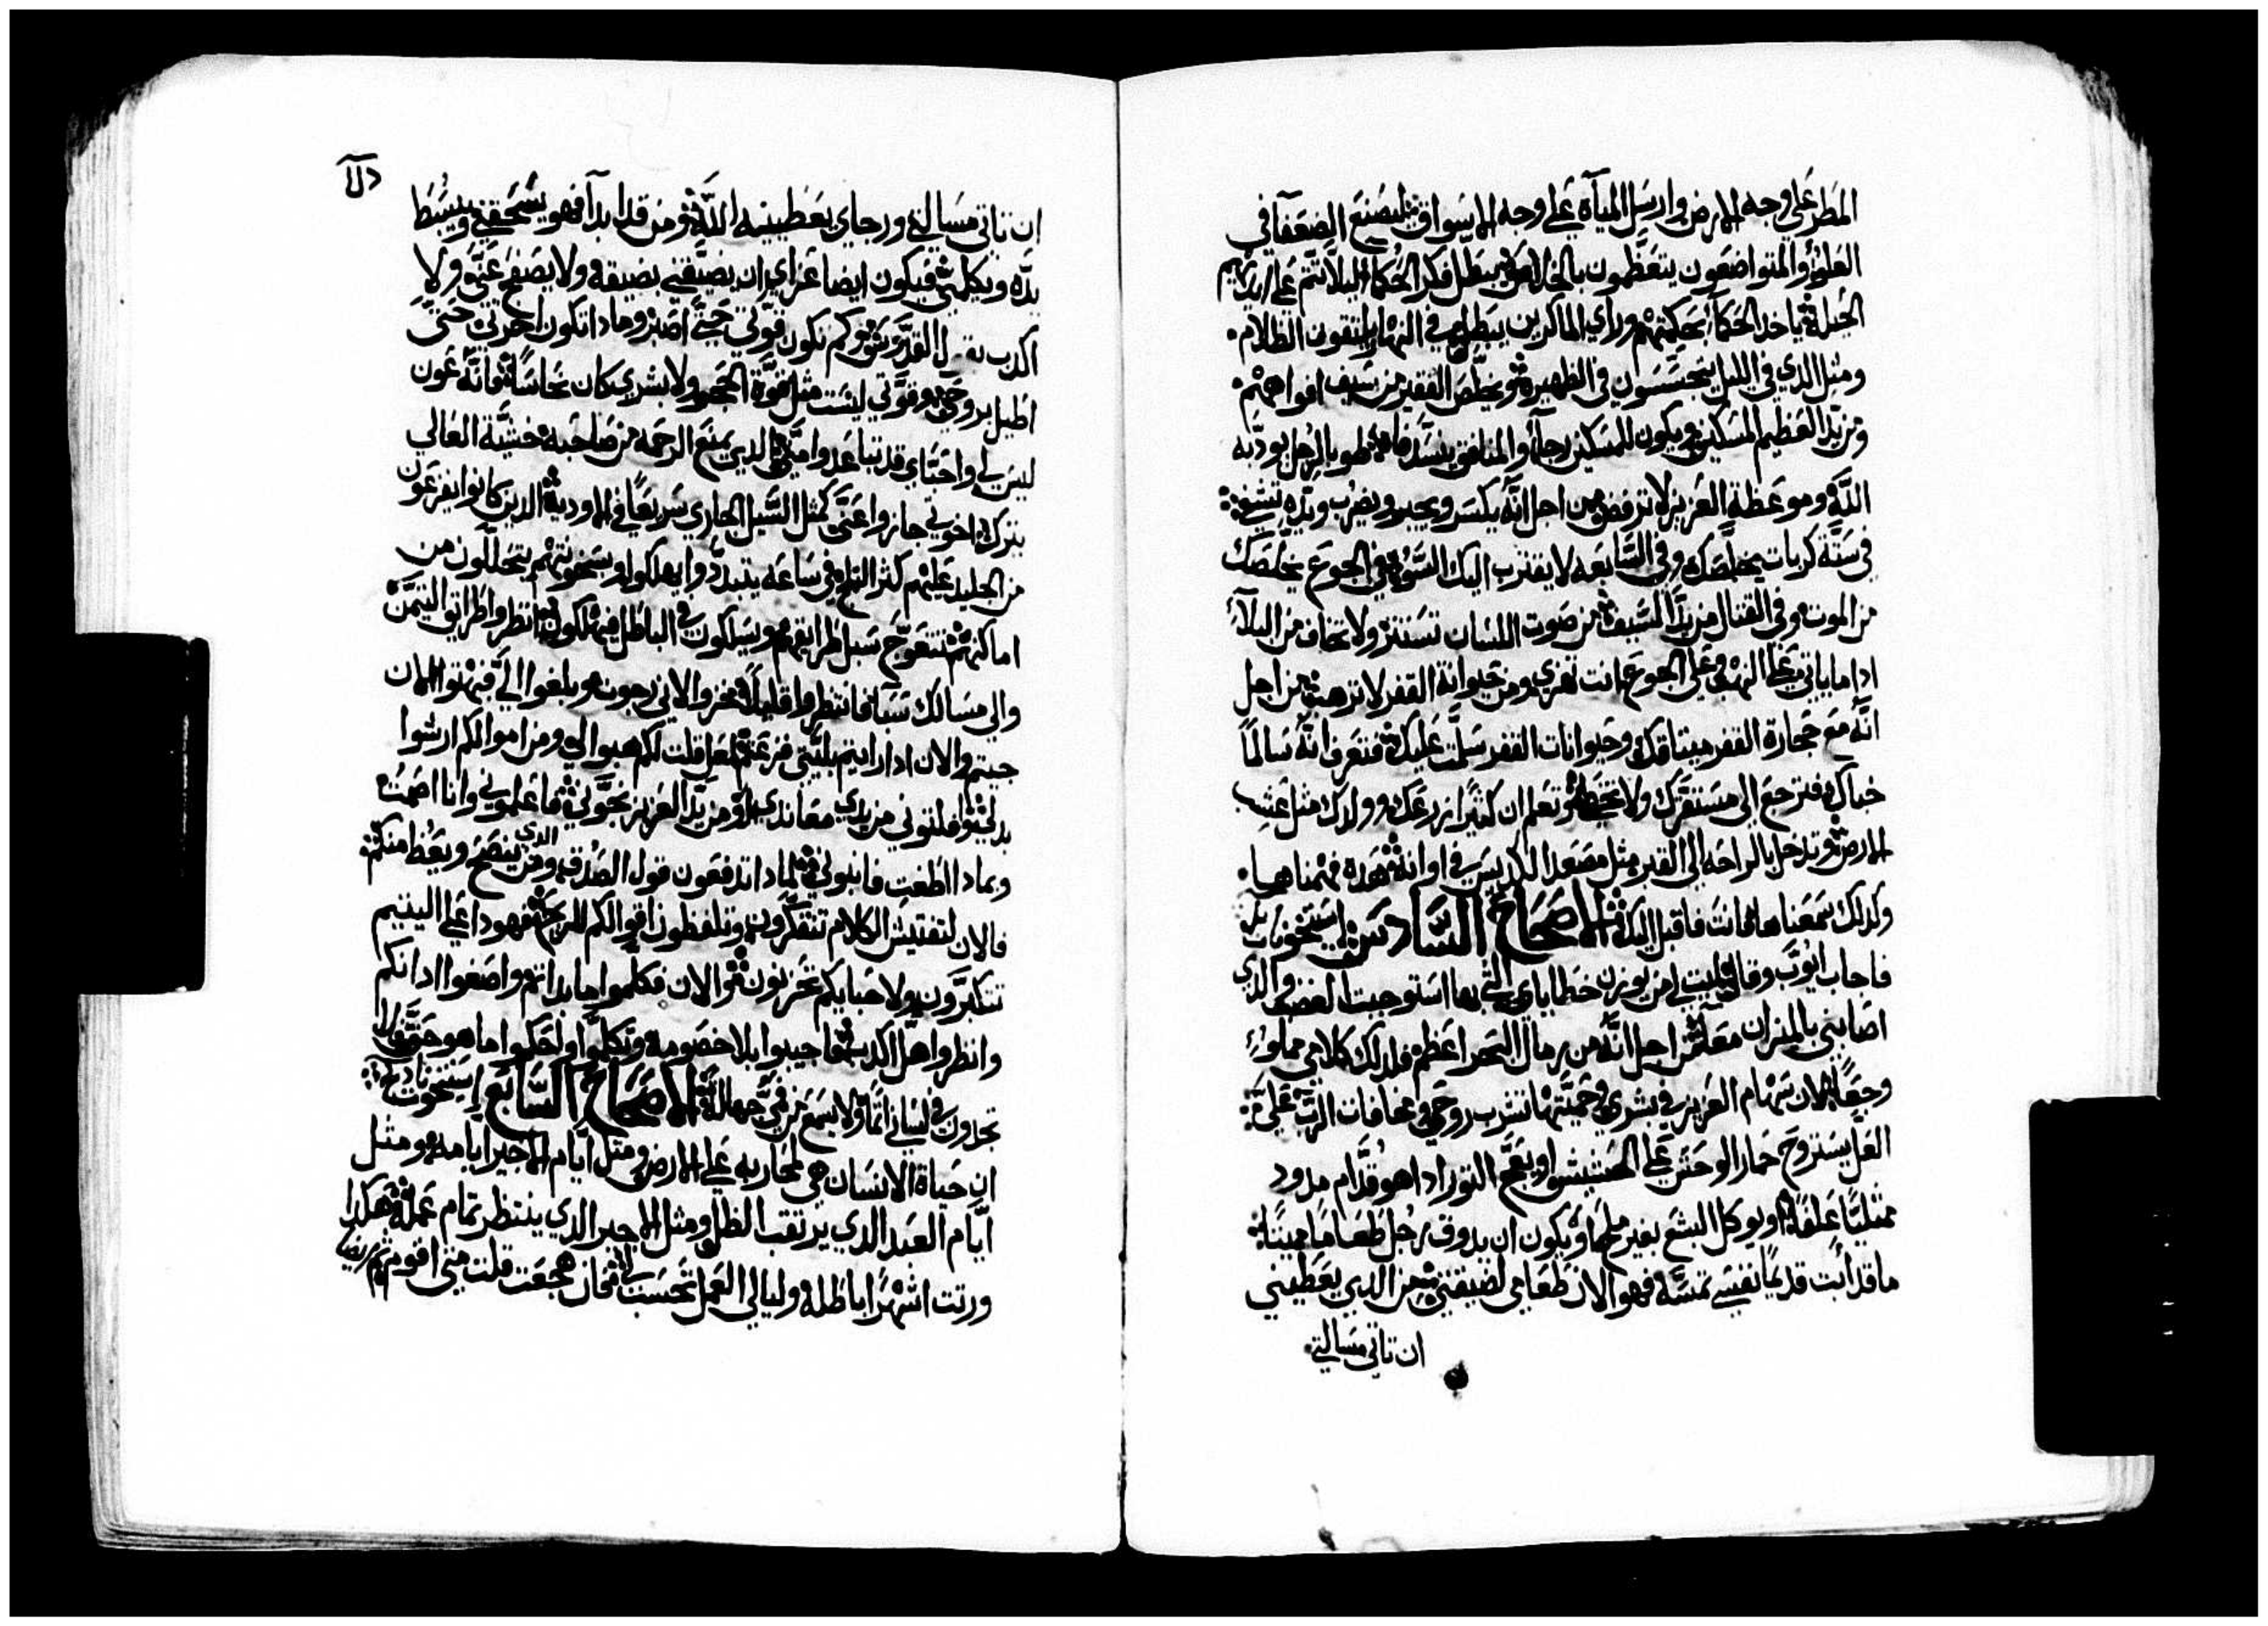 المطر على وجه الارض وارسل المياة على وجه الاسواق ليصنع الضعفا في
العلو والمتواضعون يتعظمون بالخلاص يبطل فكر الحكما ليلا تتم على ايديهم
الحيلة ياخد الحكما بحكمتهم وراي الماكرين يبطل في النهار يلتقون الظلام
ومثل الدي في الليل يتجسسون في الظهيرة ويخلص الفقير من سيف افواههم
ومن يد العظيم المسكين ويكون للمسكين رجا والمنافق ينسد فاه طوبا لرجل يودبه
الله وموعظة العزيز لا ترفض من اجل انه يكسر ويجبر ويضرب ويده تشفي
في ستة كربات يخلصك وفي السابعه لا يقترب اليك السو في الجوع يخلصك
من الموت وفي القتال من يد السيف من صوت اللسان تستتر ولا تخاف من البلا
اداما ياتي على النهب وعلى الجوع انت تهزي ومن حيوانة القفر لا ترهب من اجل
انه مع حجارة القفر ميتاقك وحيوانات القفر سلمت عليك فتعرف انه سالما
خباك فترجع الى مستقرك ولا تخطي وتعلم ان كثيرا زرعك وولدك مثل عشب
الارض وتدخل بالراحه الى القبر مثل مصعد الكديس في اوانه هوده فهمناها
وكدلك سمعناها فانت فاقبل اليك الاصحاح السادس استيخونات
فاجاب ايوب وقال ليت من يوزن خطاياي التي بها استوجبت الغضب والدي
اصابني بالميزان معا من اجل انه من رمال البحر اعظم فلدلك كلامي مملو
وجعا لان سهام العزيز في بشري وحميتها تشرب روحي ومخافات الرب علي
العل يستروح حمار الوحش على الحشيش او يعج التور اداهو قدام مدود
ممتليا علفا او يوكل البشع بغير ملح او يكون ان يدوق رجل طعاما ميتا
ما قد ابت قديما نفسي تمسه فهو الان طعامي لضيقتي من الدي يعطيني
ان تاتي مسالتي
ان تاتي مسالتي ورجاي يعطينيه الله ومن قد ابدا فهو يسحقني ويبسط
يده ويكلمني فيكون ايضا عزاي ان يضيقني بضيقة ولا يصفح عني ولا
اكدب القدوس كم تكون قوتي حتى اصبر وماداتكون اخرتي حتى
اطيل بروحي وقوتي ليست مثل قوة الحجر ولا بشري كان نحاسا فانه عون
ليس لي واحتاي قد تباعدوا مني الدي يمنع الرحمه من صاحبه خشية العالي
يترك اخوتي جازوا عني كمثل السيل الجاري سريعا في الاودية الدين كانوا يفزعون
من الجليد عليهم كثر التلج في ساعه يتبددوا يهلكوا وبسخونتهم يتحللون من
اماكنهم تتعوج سبل طرايقهم ويسلكون في الباطل فيهلكون انظروا طراتق اليتمن
والى مسالك سبا فانتظروا قليلا خزوا لاني رجوت وبلغوا الي فبهتوا الان
جيتم والان ادا رايتم بليتي فزعتم لعل قلت لكم هبوا لي ومن اموالكم ارشوا
بدلي فلتوني من يدي معاندي او من يد العزيز نجوني فاعلموني وانا اصمت
وبمادا اطغت فانبوني لمادا تدفعون قول الصدق ومن الدي ينصح ويعظ منكم
فالان لتفتيش الكلام تتفكرون وتلفظون اقوالكم للريح فهودا على اليتيم
تتكبرون ولاحبايكم تحزنون والان فكلموا ما بدانم واصغوا ادانكم
وانظروا هل اكدب فاجيبوا بلا خصومه وتكلموا ولتحكموا ما هو حق فلا
تجدون في لساني اتما ولا يسمع من في جهالة الاصحاح السابع استيخونات
ان حياة الانسان هي لمحاربه على الارض ومتل ايام الاجير ايامه ومثل
ايام العبد الدي يرتقب الظل ومثل الاجير الدي ينتظر تمام عمله هكدا
ورتت اشهرا باطلة وليالي العمل تحسبت لي فان هجعت قلت متى اقوم